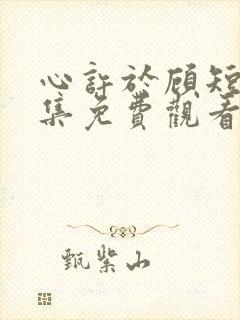 心許於顧短
集免費觀看
甄紫山